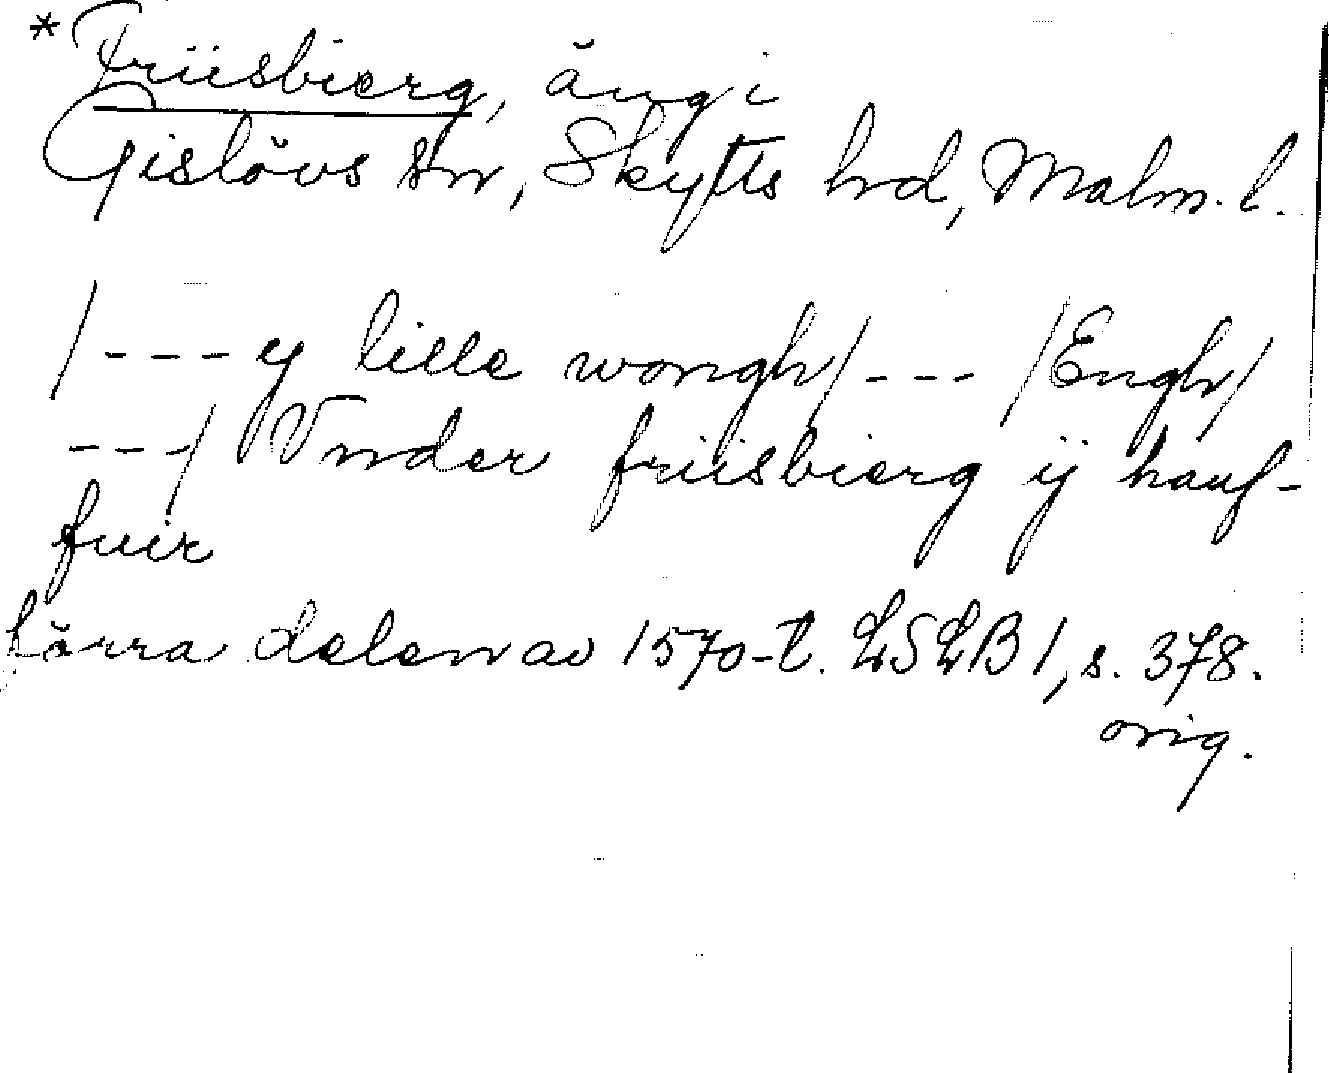 *Friisbierg, äng i
Gislövs sn, Skytts hd, Malm. l.
/---y lille wongh/--- /Engh/
---/ Vnder friisbierg ij hauf-
fuir
förra delen av 1570-t. LSLB 1, s. 378.
orig.